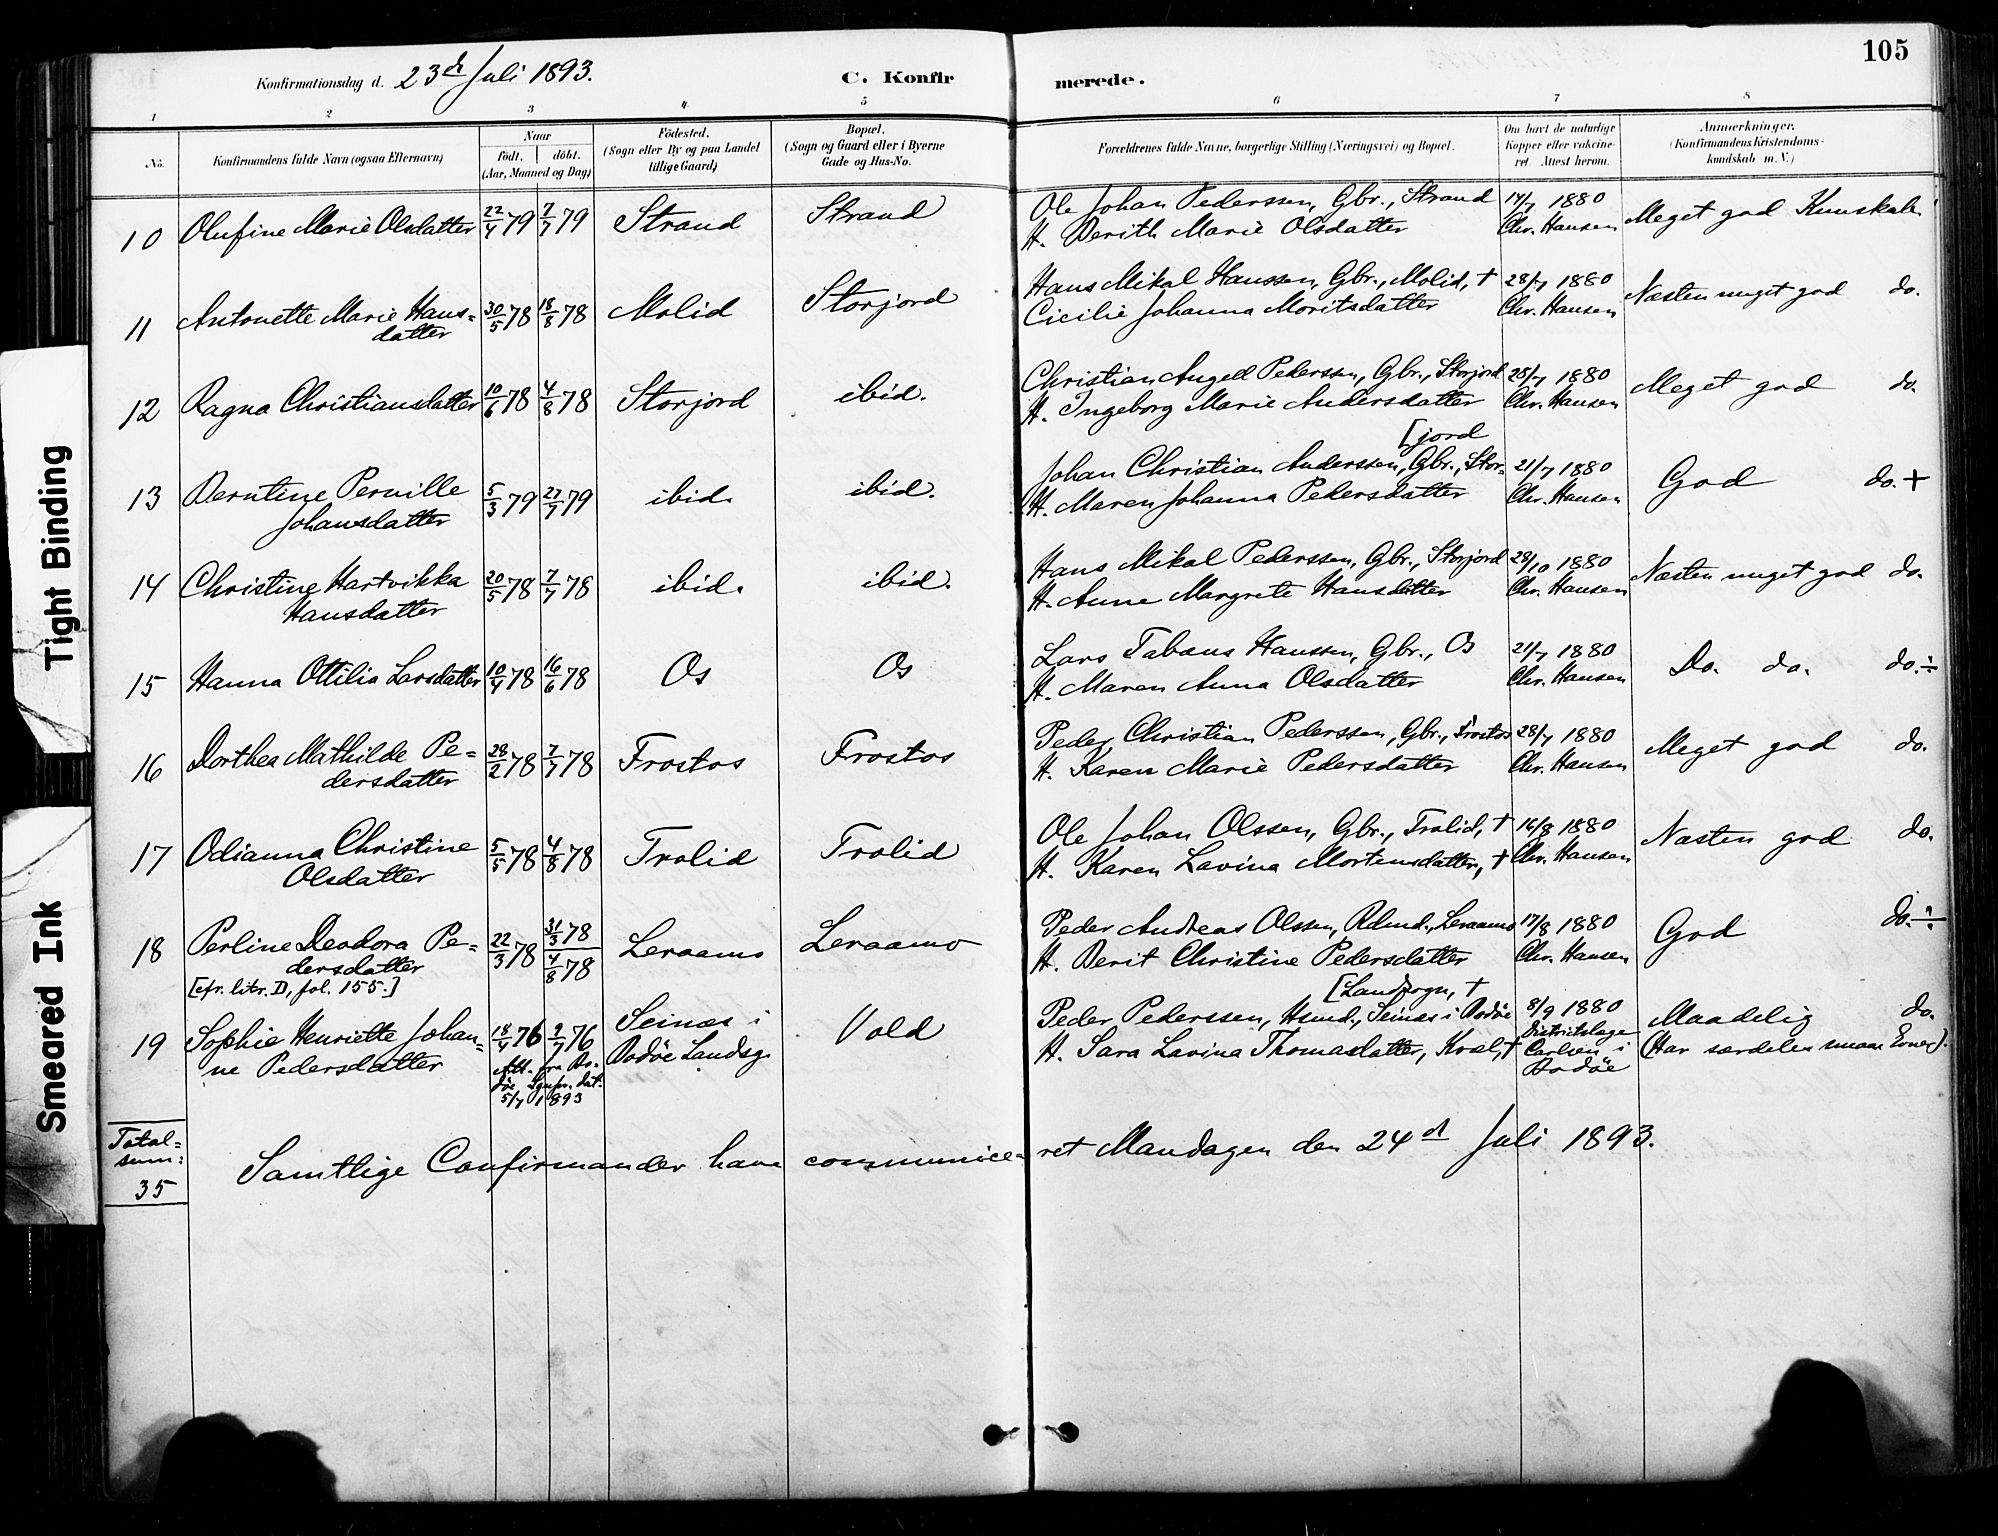 105
Konfirmationsdag d. 23d Juli 1893.
C. Konfirmerede.
1 2 3 4 5 6 7 8
No. Konfirmandens fulde Navn (ogsaa Efternavn) Naar födt. döbt. (Aar, Maaned og Dag) Födested. (Sogn eller By og paa Landet tillige Gaard) Bopæl. (Sogn og Gaard eller i Byerne Gade og Hus-No. Forældrenes fulde Navne, borgerlige Stilling (Næringsvei) og Bopæl. Om havt de naturlige Kopper eller vakcineret. Attest herom. Anmerkninger. (Konfirmandens Kristendomskundskab m. V.)
10 Olufine Marie Olsdatter 22/4 79 7/7 79 Strand Strand Ole Johan Pederssen, Gbr., Strand 14/7 1880 Meget god Kunskab
H. Berith Marie Olsdatter Chr. Hansen
11 Antonette Marie Hans= 30/5 78 18/8 78 Molid Storjord Hans Mikal Hanssen, Gbr., Molid, † 28/7 1880 Næsten meget god do.
datter Cicilie Johanna Moritsdatter Chr. Hansen
12 Ragna Christiansdatter 10/6 78 4/8 78 Storjord ibid. Christian Angell Pederssen, Gbr., Storjord 28/7 1880 Meget god do.
H. Ingeborg Marie Andersdatter Chr. Hansen
[jord
13 Berntine Pernille 5/3 79 27/7 79 ibid. ibid. Johan Christian Anderssen, Gbr., Stor- 21/7 1880 God do. +
Johansdatter H. Maren Johanna Pedersdatter Chr. Hansen
14 Christine Hartvikka 20/5 78 7/7 78 ibid. ibid. Hans Mikal Pederssen, Gbr., Storjord 28/10 1880 Næsten meget god do.
Hansdatter H. Anne Margrete Hansdatter Chr. Hansen
15 Hanna Ottilia Larsdatter 10/4 78 16/6 78 Os Os Lars Tabæus Hanssen, Gbr., Os 21/7 1880 Do. do. do. ÷
H. Maren Anna Olsdatter Chr. Hansen
16 Dorthea Mathilde Pe= 28/2 78 7/7 78 Frostos Frostos Peder Christian Pederssen, Gbr., Frostos 28/7 1880 Meget god do.
dersdatter H. Karen Marie Pedersdatter Chr. Hansen
17 Odianna Christine 5/5 78 4/8 78 Trolid Trolid Ole Johan Olssen, Gbr., Trolid, † 16/8 1880 Næsten god do.
Olsdatter H. Karen Lavina Mortensdatter, † Chr. Hansen
18 Perline Deodora Pe= 22/3 78 31/3 78 Leraamo Leraamo Peder Andreas Olssen, Rdmd., Leraamo 17/8 1880 God do. ÷
dersdatter 4/8 78 H. Berit Christine Pedersdatter Chr. Hansen
[cfr. litr. D, fol. 155.] [Landsogn, †
19 Sophie Henriette Johan= 18/4 76 9/7 76 Seinæs i Vold Peder Pederssen, Hsmd., Seinæs i Bodøe 8/9 1880 Maadelig do.
ne Pedersdatter Att. fra Bo- Bodöe Landsg. H. Sara Lavina Thomasdatter, Kval, † Distriktslæge (Har særdeles smaa Evner).
döe Sgnpr. dat. Carlsen i
5/7 1893 Bodöe
Total=
sum:
35
Samtlige Confirmander have communiceret Mandagen den 24d Juli 1893.
Tight Binding
Smeared Ink